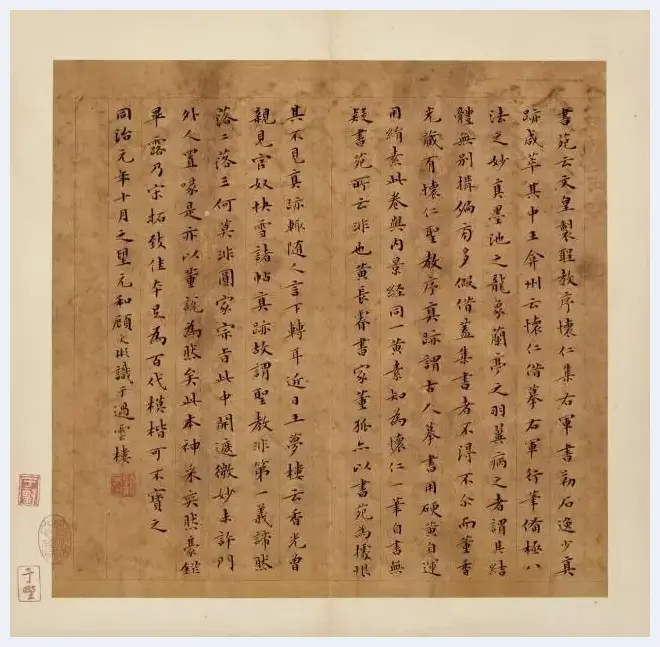 書苑云文皇製聖教序懷仁集右軍書勒石逸少真
跡咸萃其中王弇州云懷仁偕摹右軍行筆備極八
法之妙真墨池之龍象蘭亭之羽翼病之者謂其結
體無別搆偏旁多假偕蓋集書者不得不尒而董香
光識有懷仁聖教序真跡謂古人摹書用硬黃自運
用絹素此卷與內景經同一黃素知為懷仁一筆自書無
疑書苑所云非也黃長睿書家董狐亦以書苑為據恨
其不見真跡輒隨人言下轉耳近日王夢樓云香光曾
親見官奴快雪諸帖真跡故謂聖教非第一義諦然
落二落三何莫非圖家宗旨此中開遮微妙未許門
外人置喙是亦以董說為然矣此本神采奕然豪鋩
畢露乃宋拓致佳本足為百代模楷可不寶之
同治元年十月之望元和顧文彬識于過雲樓